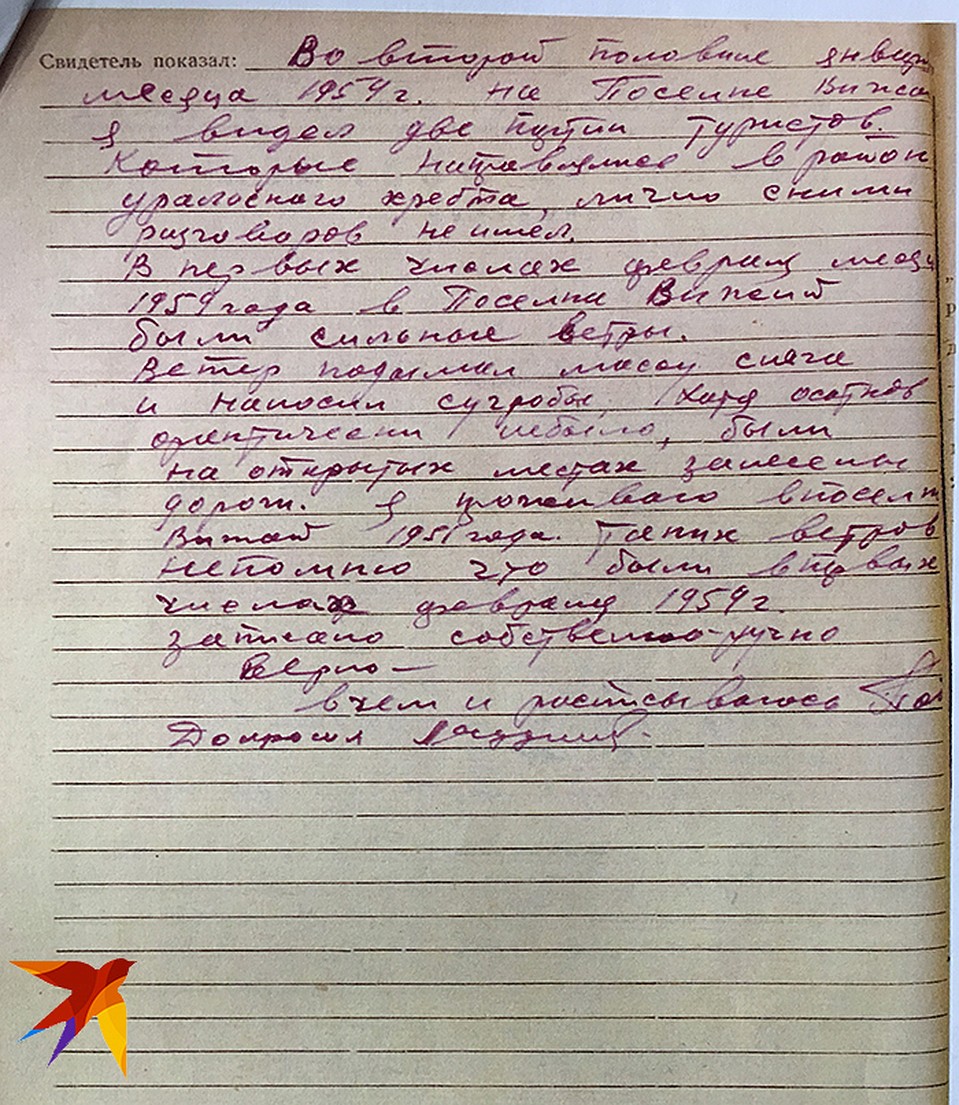 Свидетель показал: Во второй половине январ
месяца 1959 г. на Поселке Вижай
я видел две группы туристов.
Которые направлялись в район
уральского хребта, лично сними
разговоров неимел.
В первых числах февраля месяц
1959 года в Поселки Вижай
были сильные ветры.
Ветер подымал массу снега
и наносил сугробы. Хотя осатков
практически небыло, были
на открытых местах занесены
дороги. Я проживаю впоселк
Вижай 1951 года. Таких ветров
непомню что были впервых
числах февраля 1959 г.
записано собственно-ручно
Верно —
вчем и росписываюсь
Допросил